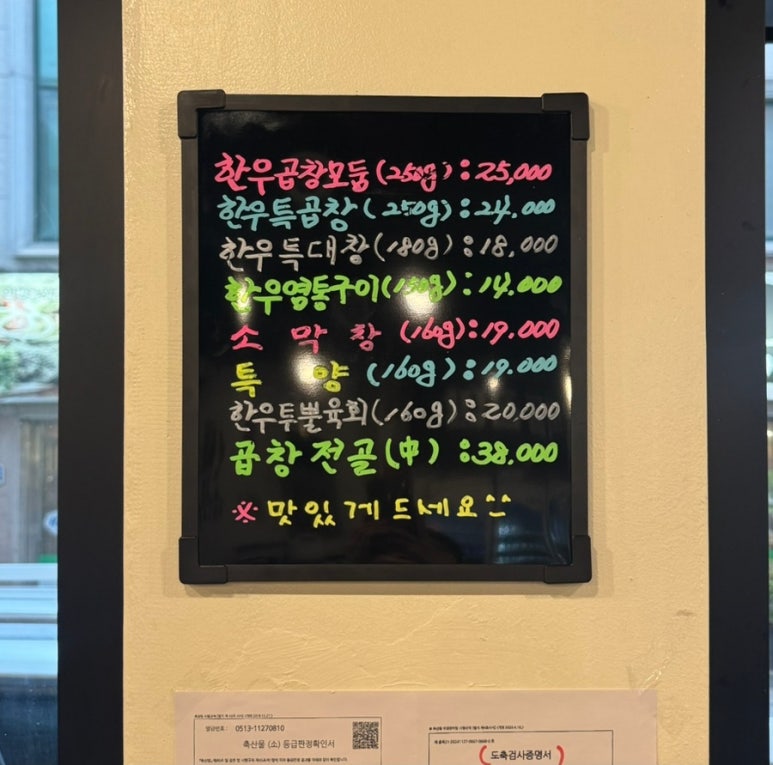 한우곱창모둠(250g):25,000
한우특곱창(250g):24.000
한우특대창(180g):18,000
한우염통구이(150g):14.000
소 막 창 (160g):19.000
특 양 (160g):19.000
한우투뿔육회(160g):20,000
곱창전골(中):38.000
※맛있게드세요^^
0513-11270810
축산물 (소) 등급판정확인서
도축검사증명서